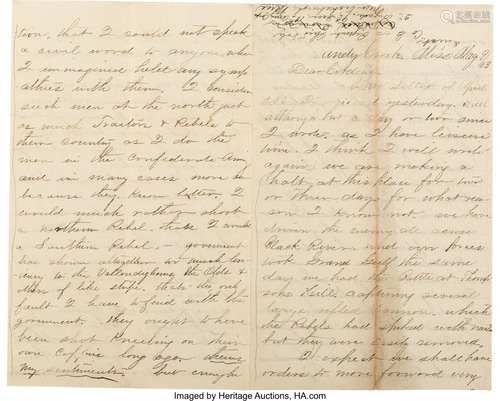 tion, that I could not speak
a civil word to anyone who
I immagined held any symp
athies with them. I Consider
such men at the north just
as much Traitors & Rebels to
their Country as I do the
men in the Confederate
and in many cases more so
because they know better. I
would much rather shoot
a Northern Rebel, than I would
a Southern Rebel. – government
has shown altogether too much len-
ency to the Vallendighams the Olds &
others of like stripe. thats the only
fault I have to find with the
government. they ought to have
been shot Kneeling on their
own Coffins long ago. theirs
my sentiments, but enough
Sandy Creek, Miss May 9/63
Dear Cordelia
Your letter of April
received yesterday. and
although but a day or two since
I wrote, as I have leasure
time. I think I will write
again, we are making a
halt, at this place for two
or three days for what rea-
son I Know not, we have
driven the enemy all across
Black River, and our forces
took Grand Gulf the same
day we had the Battle at Thomp
sons Hill. Capturing several
large rifled Cannon, which
the Rebels had spiked with nails
but they were easily removed.
I expect we shall have
orders to move forward very
Imaged by Heritage Auctions, HA.com